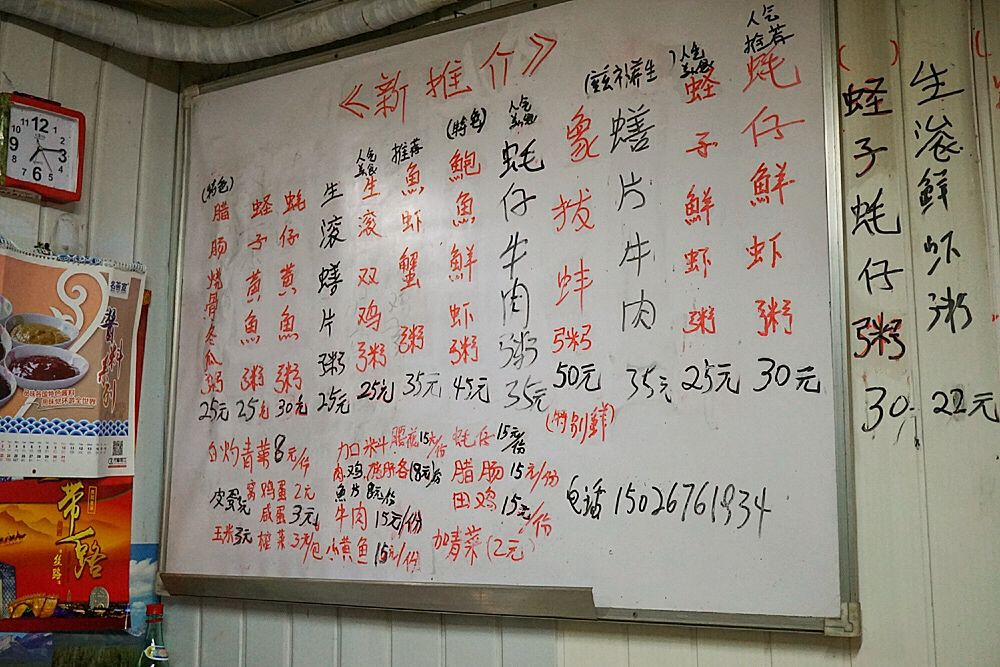 《新推介》
(特色)
腊肠烧骨冬瓜粥
25元
蛏子黄魚粥
25元
蚝仔黄魚粥
30元
生滚鳝片粥
25元
人气美食
生滚双鸡粥
25元
推荐
魚虾蟹粥
35元
(特色)
鮑魚鮮虾粥
45元
人气美食
蚝仔牛肉粥
35元
象拔蚌粥
50元
(特别鮮)
鳝片牛肉
35元
人气美食
蛏子鮮虾粥
25元
人气推荐
蚝仔鮮虾粥
30元
蛏子蚝仔粥
30
生滚鮮虾粥
22元
白灼青菜8元/份
加口米料
15元/份
蚝仔15元/份
18元/份
腊肠15元/份
皮蛋
鸡蛋2元
魚片8元/份
田鸡15元/份
咸蛋3元
牛肉15元/份
玉米3元
榨菜3元/包
小黄鱼15元/份
加青菜(2元)
电话15026761934
12
3
6
9
酱料系列
带一路
丝路